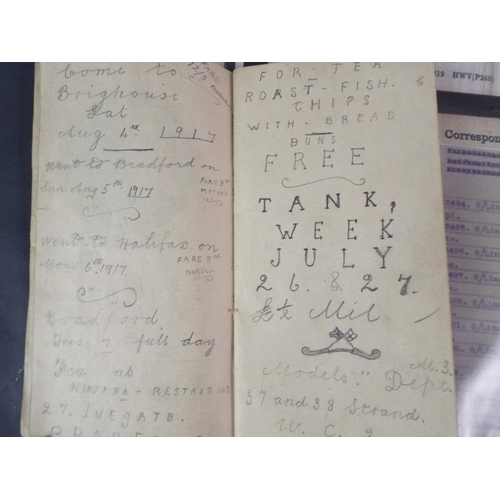 Come to
Brighouse
Sat
Aug 4th 1917
FARE
1/3
Went to Bradford on
Sun Aug 5th 1917
FARE 8D
RETURN
Went to Halifax on
Mon 6th 1917
FARE
Bradford
Tues 7 full day
Tea at
NIAGANA - RESTAURANT
27. IVEGATE.
FOR - TEA
6
ROAST - FISH.
CHIPS
WITH - BREAD
BUNS
FREE
TANK,
WEEK
JULY
26. & 27.
£½ Mil
Models." M.3.
Dept.
37 and 38 Strand.
W. C. 2
919 HWV(P240)
Correspon